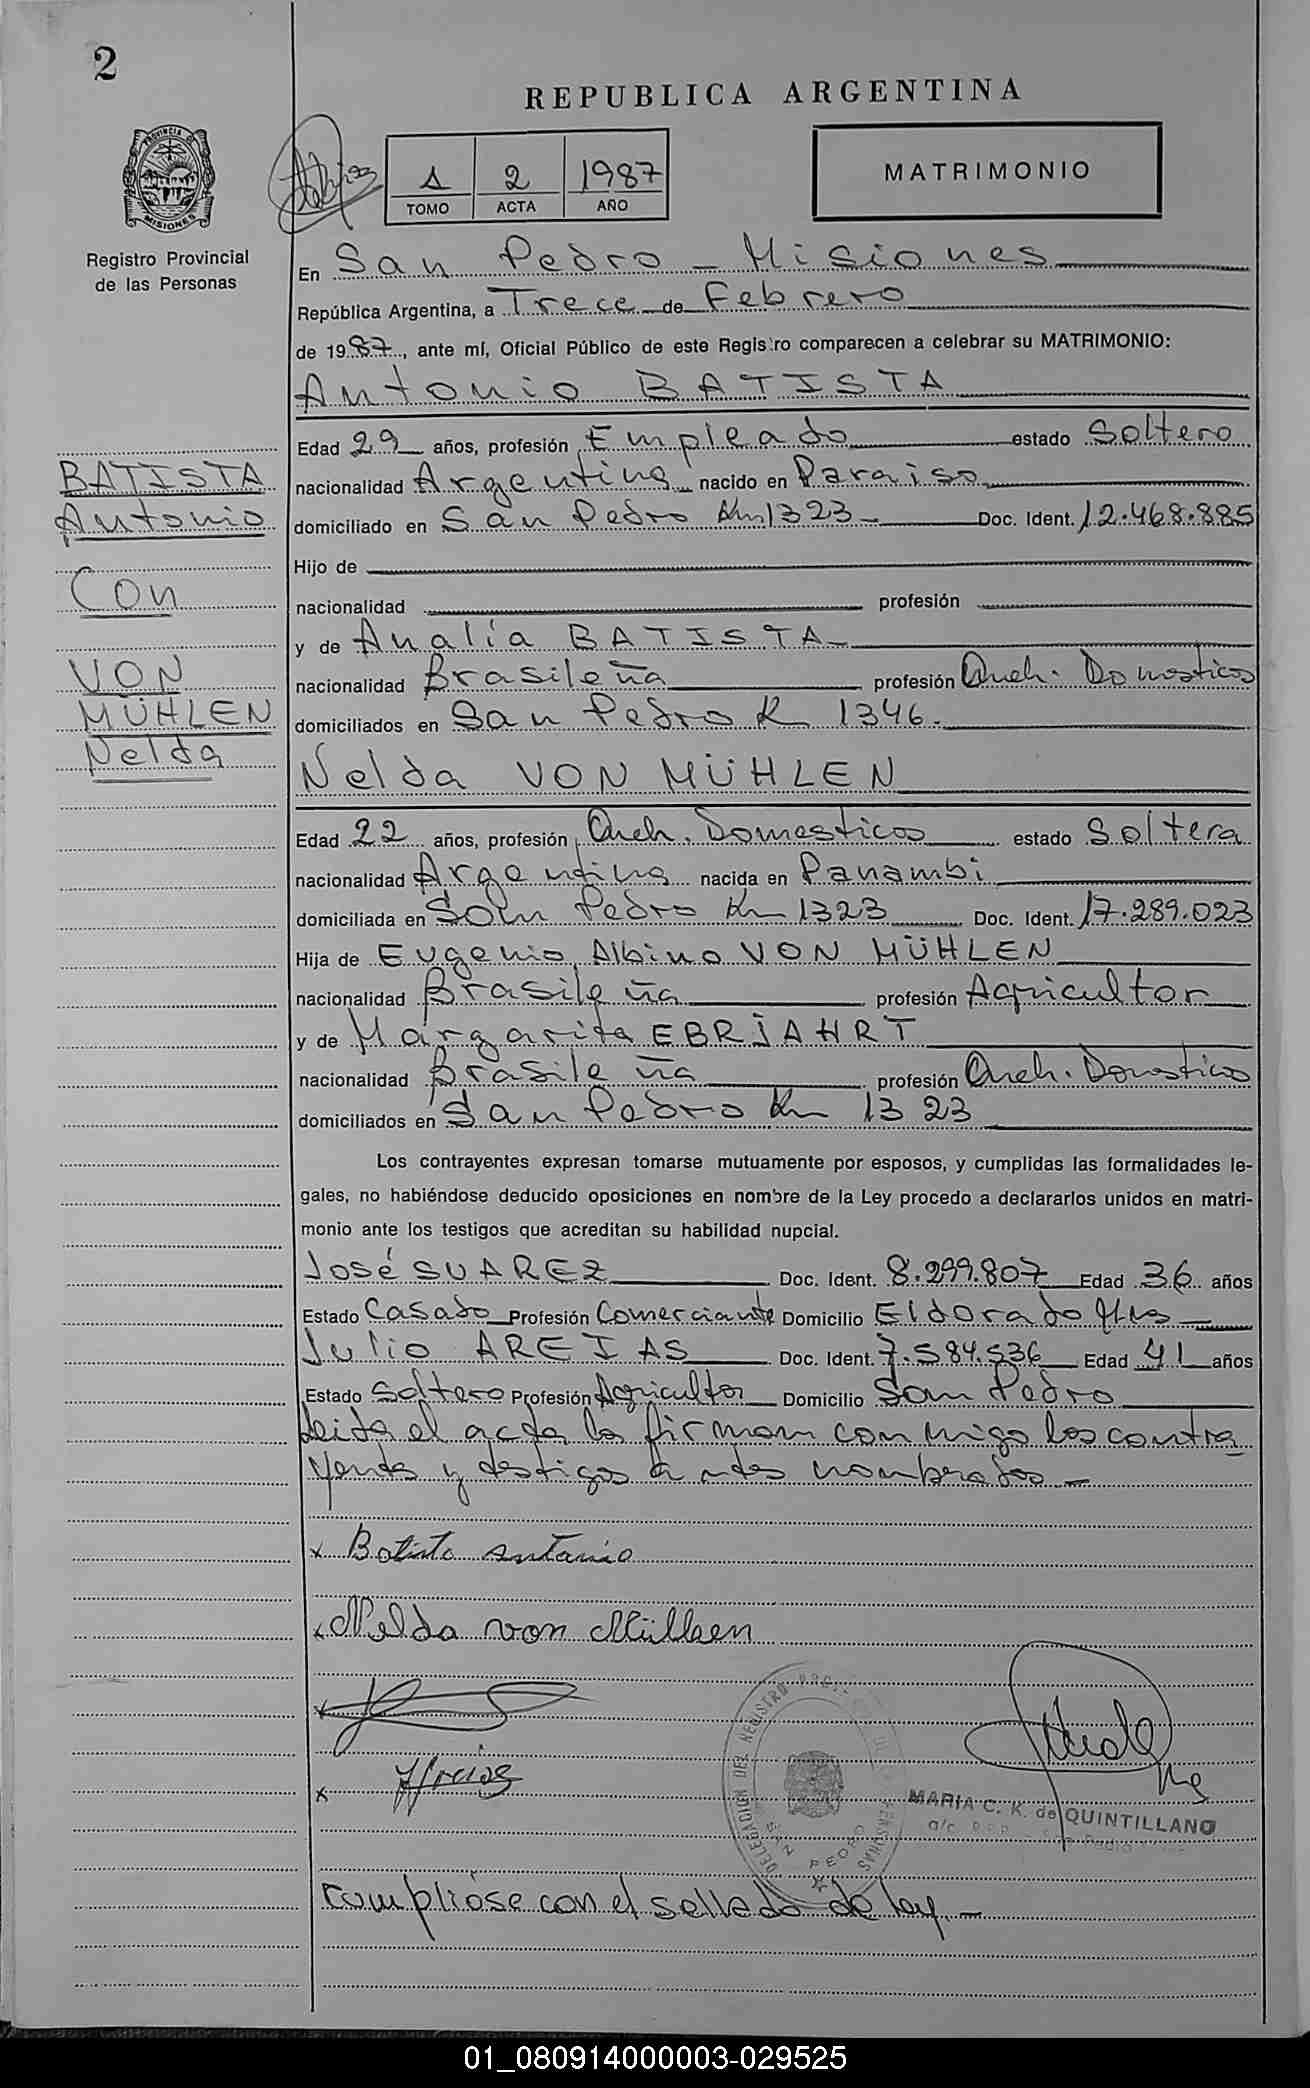 2
REPUBLICA ARGENTINA
PROVINCIA DE
MISIONES
Registro Provincial
de las Personas
1 2 1987
TOMO ACTA AÑO
MATRIMONIO
En San Pedro - Misiones
República Argentina, a Trece de Febrero
de 1987, ante mí, Oficial Público de este Registro comparecen a celebrar su MATRIMONIO:
Antonio BATISTA
Edad 29 años, profesión Empleado estado Soltero
nacionalidad Argentina nacido en Paraiso
domiciliado en San Pedro Km 1323- Doc. Ident. 12.468.885
Hijo de
nacionalidad profesión
y de Analía BATISTA
nacionalidad Brasileña profesión Queh. Domesticos
domiciliados en San Pedro K 1346.
BATISTA
Antonio
Con
VON
MÜHLEN
Nelda
Nelda VON MÜHLEN
Edad 22 años, profesión Queh. Domesticos estado Soltera
nacionalidad Argentina nacida en Panambi
domiciliada en San Pedro Km 1323 Doc. Ident. 17.289.023
Hija de Eugenio Albino VON MÜHLEN
nacionalidad Brasileña profesión Agricultor
y de Margarita EBRJAHRT
nacionalidad Brasileña profesión Queh. Domesticos
domiciliados en San Pedro Km 1323
Los contrayentes expresan tomarse mutuamente por esposos, y cumplidas las formalidades le-
gales, no habiéndose deducido oposiciones en nombre de la Ley procedo a declararlos unidos en matri-
monio ante los testigos que acreditan su habilidad nupcial.
José SUAREZ Doc. Ident. 8.299.807 Edad 36 años
Estado Casado Profesión Comerciante Domicilio Eldorado
Julio AREJAS Doc. Ident. 7.584.536 Edad 41 años
Estado Soltero Profesión Agricultor Domicilio San Pedro
Leida el acta la firman con migo los contra
yentes y testigos antes nombrados -
x Batista Antonio
x Nelda von Mülhen
x
x
DELEGACION DEL REGISTRO PROVINCIAL DE LAS PERSONAS
SAN PEDRO
MARIA C. K. de QUINTILLANO
a/c. San Pedro
Cumplióse con el sellado de ley. -
01_080914000003-029525